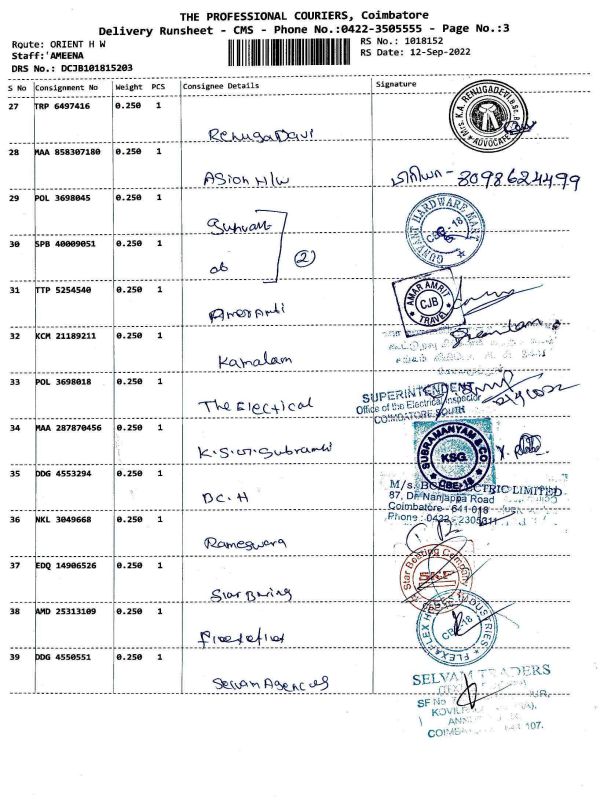 THE PROFESSIONAL COURIERS, Coimbatore
Delivery Runsheet - CMS - Phone No.:0422-3505555 - Page No.:3
Route: ORIENT H W RS No.: 1018152
Staff:'AMEENA RS Date: 12-Sep-2022
DRS No.: DCJB101815203
S No Consignment No Weight PCS Consignee Details Signature
27 TRP 6497416 0.250 1
RenugaDavi
Mrs. K.A. RENUGADEVI, B.Sc. B.
ADVOCATE
28 MAA 858307180 0.250 1
Asion H/W
- 8098624499
29 POL 3698045 0.250 1
Gunvant
GUNVANT HARDWARE MART
CBE-18
30 SPB 40009051 0.250 1
do
2
31 TTP 5254540 0.250 1
AMAR AMRIT
CJB
TRAVEL
32 KCM 21189211 0.250 1
Kamalam
33 POL 3698018 0.250 1
The Electical
SUPERINTENDENT
Office of the Electrical Inspector
COIMBATORE SOUTH
34 MAA 287870456 0.250 1
K.S.G. Subramni
SUBRAMANYAM & CO
KSG
CBE-18
35 DDG 4553294 0.250 1
D.C.H
M/s. ELECTRIC LIMITED
87, Dr. Nanjappa Road
Coimbatore - 641 018
Phone : 0422 - 2305311
36 NKL 3049668 0.250 1
Rameswara
37 EDQ 14906526 0.250 1
Star Boring
Star Boring Company
38 AMD 25313109 0.250 1
FLEXAFLEX HOSES INDUSTRIES
CBE-18
39 DDG 4550551 0.250 1
Selvam Agencies
SELVAM TRADERS
SF No
COIMB 107.